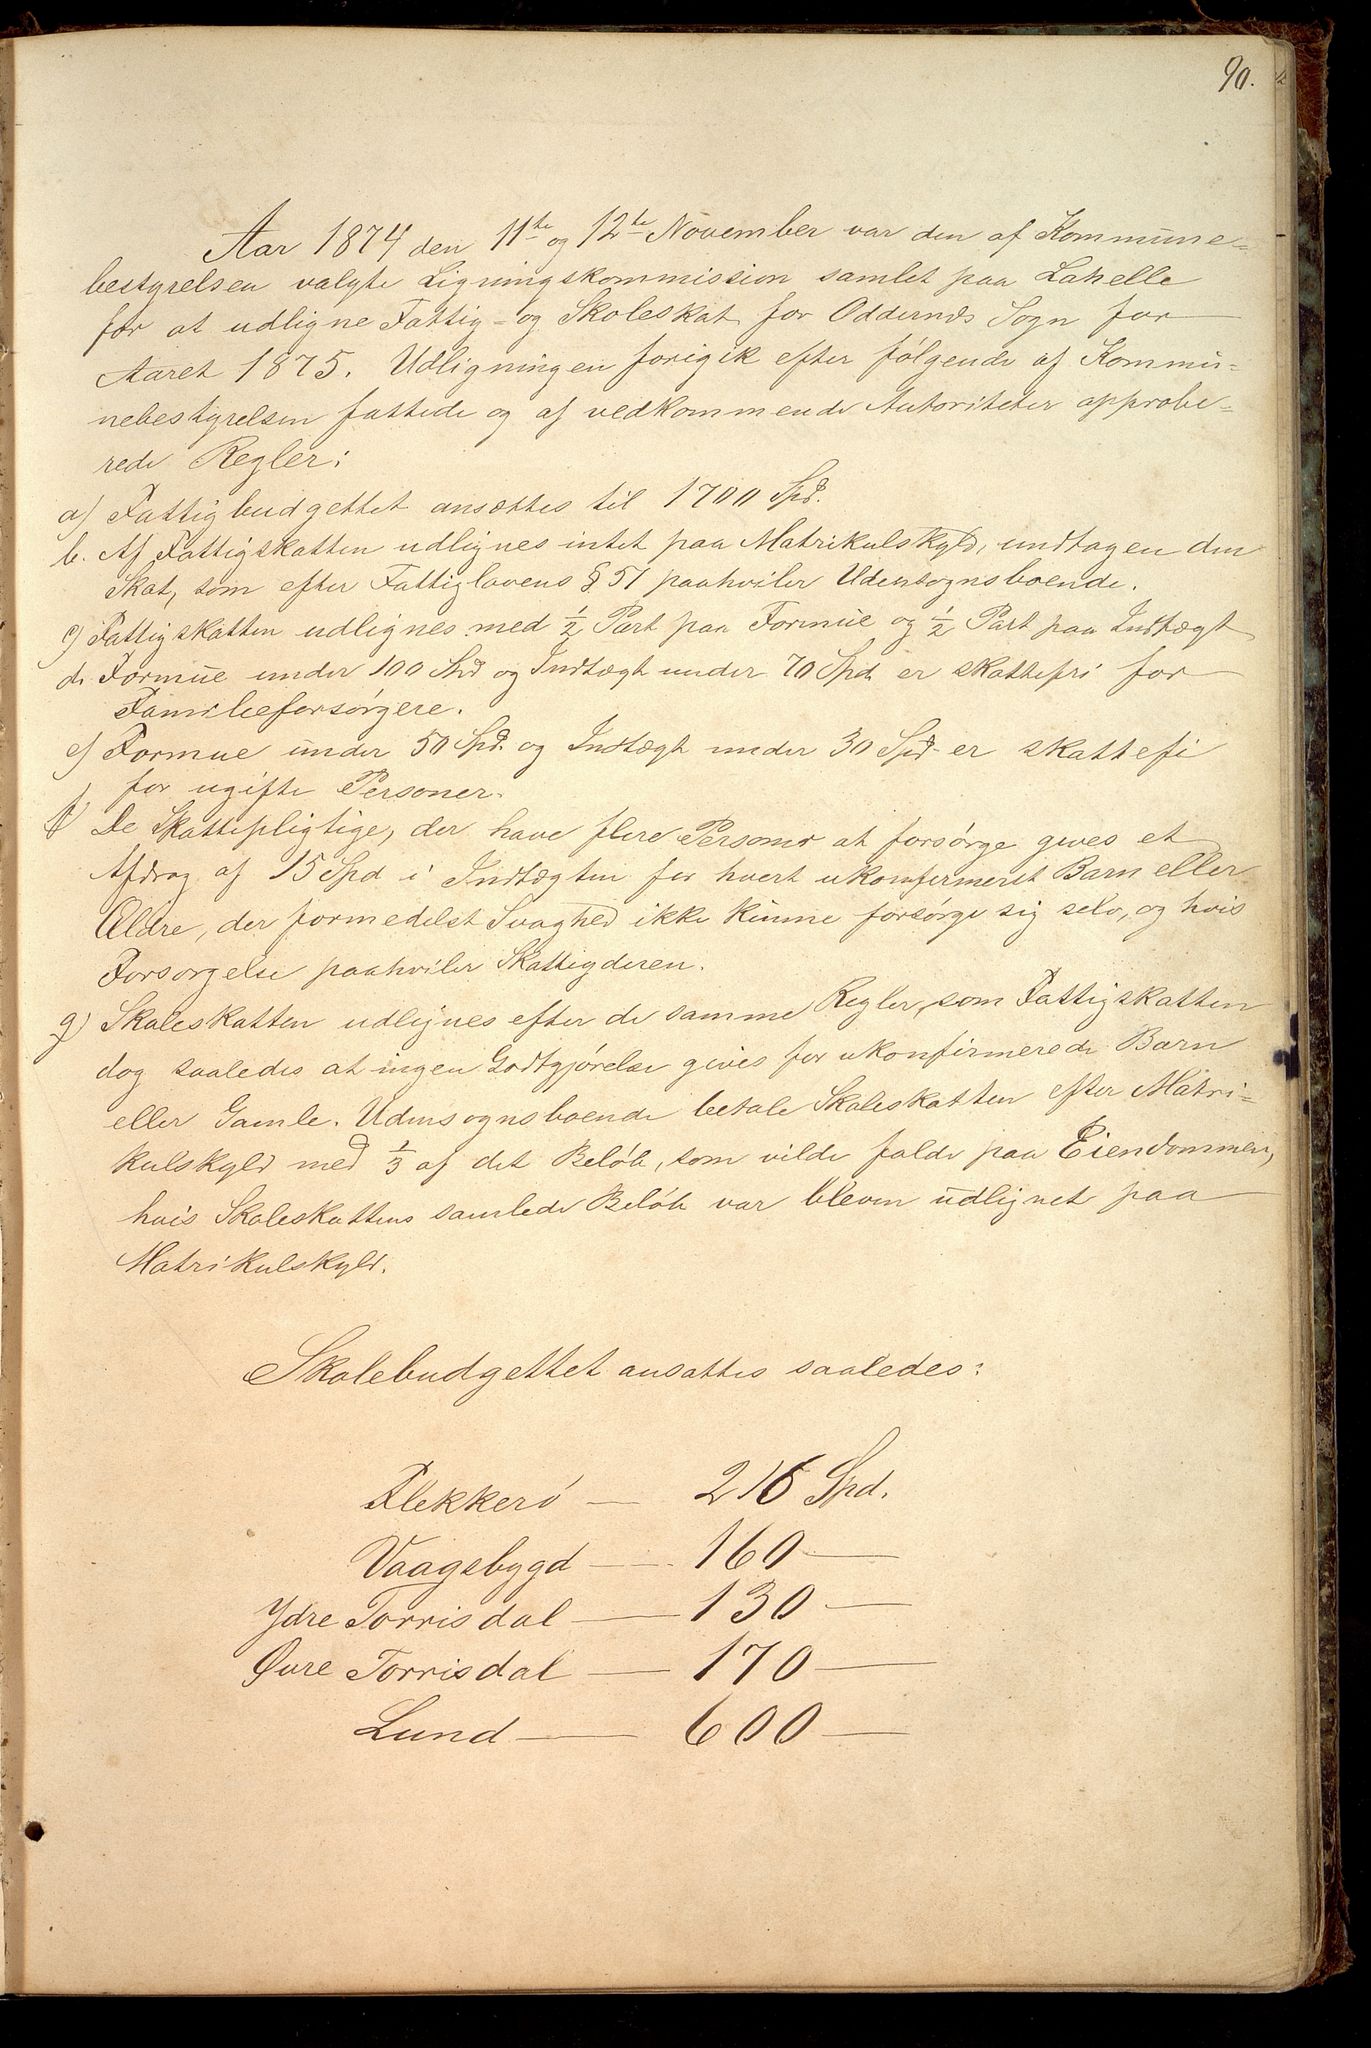 90.
Aar 1874 den 11te og 12te November var den af Kommune=
bestyrelsen valgte Ligningskommission samlet paa Lahelle
for at udligne Fattig- og Skoleskat for Oddernæs Sogn for
Aaret 1875. Udligningen forigik efter følgende af Kommu=
nebestyrelsen fattede og af vedkommende Autoriteter approbe=
rede Regler:
a) Fattigbudgettet ansættes til 1700 Spd.
b. Af Fattigskatten udlignes intet paa Matrikulskyld, undtagen den
Skat, som efter Fattiglovens § 51 paahviler Udensognsboende.
c) Fattigskatten udlignes med ½ Part paa Formue og ½ Part paa Indtægt
d. Formue under 100 Spd og Indtægt under 70 Spd er skattefri for
Familieforsørgere.
e) Formue under 50 Spd. og Indtægt under 30 Spd er skattefi
for ugifte Personer.
f) De Skattepligtige, der have flere Personer at forsørge gives et
Afdrag af 15 Spd i Indtægten for hvert ukonfirmeret Barn eller
Ældre, der formedelst Svaghed ikke kunne forsørge sig selv, og hvis
Forsørgelse paahviler Skattigderen.
g) Skoleskatten udlignes efter de samme Regler, som Fattigskatten
dog saaledes at ingen Godtgjørelse gives for ukonfirmerede Børn
eller Gamle. Udensognsboende betale Skoleskatten efter Matri=
kulskyld med ⅓ af det Beløb, som vilde falde paa Eiendommen,
hvis Skoleskattens samlede Beløb var bleven udlignet paa
Matrikulskyld.
Skolebudgettet ansattes saaledes:
Flekkerø — 216 Spd.
Vaagsbygd — 160 —
Ydre Torrisdal — 130 —
Øvre Torrisdal — 170 —
Lund — 600 —